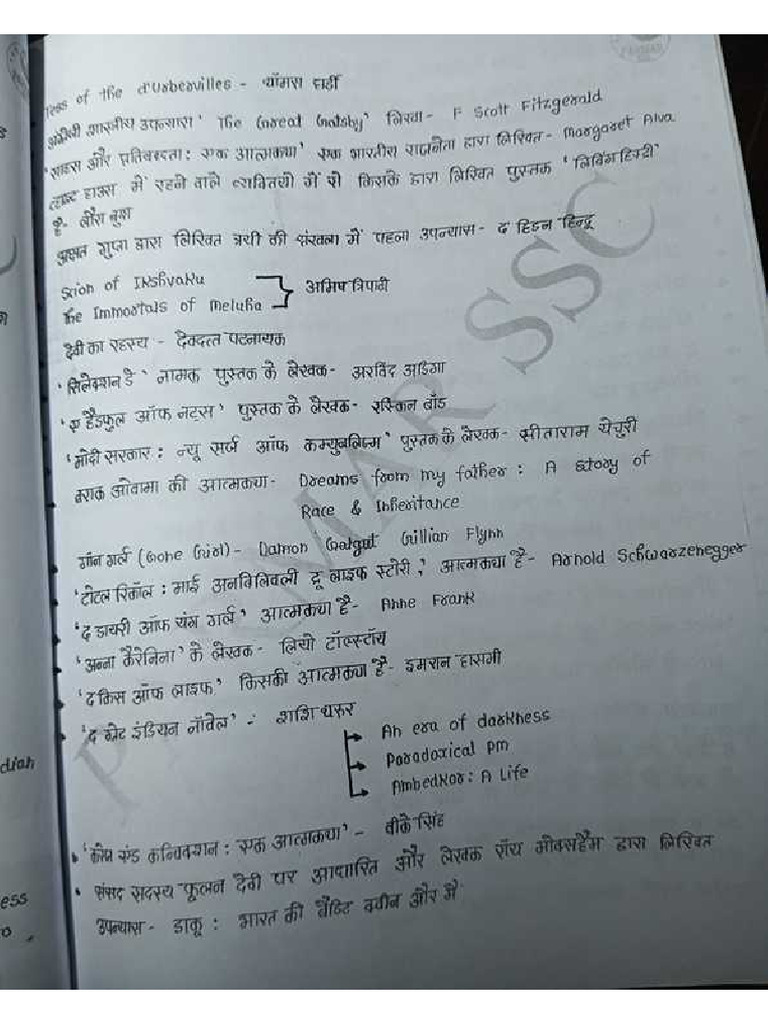 Tess of the d'Urbervilles - थॉमस हार्डी
'The Great Gatsby' लिखा - F Scott Fitzgerald
'साहस और प्रतिबद्धता: एक आत्मकथा' एक भारतीय राजनेता द्वारा लिखित - Margaret Alva
व्हाइट हाउस में रहने वाले व्यक्तियों में से किसके द्वारा लिखित पुस्तक 'लिविंग हिस्ट्री'
है - लौरा बुश
अक्षत गुप्ता द्वारा लिखित त्रयी की श्रंखला में पहला उपन्यास - द हिडन हिन्दू
Scion of IKshvaku
The Immortals of Meluha } अमिष त्रिपाठी
देवी का रहस्य - देवदत्त पटनायक
'सिलेक्शन डे' नामक पुस्तक के लेखक - अरविंद अडिगा
'ए हैंडफुल ऑफ नट्स' पुस्तक के लेखक - रस्किन बॉंड
'मोदी सरकार: न्यू सर्ज ऑफ कम्युनलिज्म' पुस्तक के लेखक - सीताराम येचुरी
बराक ओबामा की आत्मकथा - Dreams from my father: A story of
Race & Inheritance
गॉन गर्ल (Gone Girl) - Gillian Flynn
'टोटल रिकॉल: माई अनबिलिवली ट्रू लाइफ स्टोरी', आत्मकथा है - Arnold Schwarzenegger
'द डायरी ऑफ यंग गर्ल' आत्मकथा है - Anne Frank
'अन्ना कैरेनिना' के लेखक - लियो टॉल्स्टॉय
'द किस ऑफ लाइफ' किसकी आत्मकथा है - इमरान हासमी
'द ग्रेट इंडियन नॉवेल': शशि थरूर
An era of darkness
Paradoxical pm
Ambedkar: A Life
'करेज एंड कन्विक्शन: एक आत्मकथा' - वीके सिंह
संसद सदस्य फूलन देवी पर आधारित और लेखक रॉय मोक्सहैम द्वारा लिखित
उपन्यास - डाकू: भारत की बैंडिट क्वीन और मैं
PARMAR SSC
dian
ess